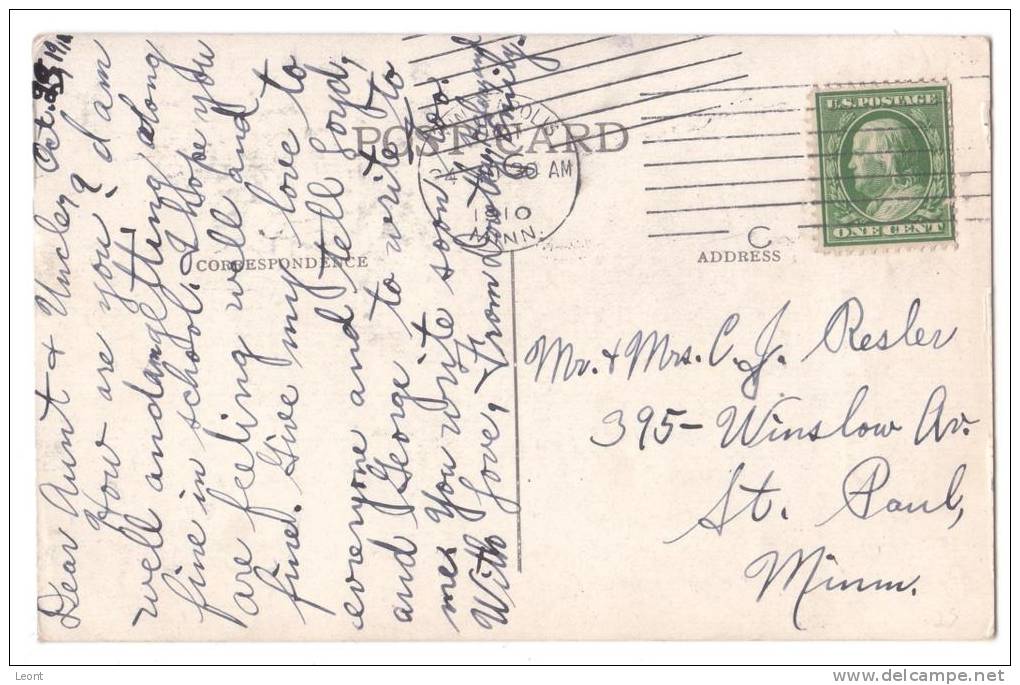 Oct. 1910
Dear Aunt & Uncle,
How are you? I am
well and am getting along
fine in school. I hope you
are feeling well and
fine. Give my love to
everyone and tell Loyd,
and George to write to
me. You write soon, too.
With love, From
family.
POST CARD
CORRESPONDENCE
ADDRESS
30 AM
1910
MINN.
C
U.S. POSTAGE
ONE CENT
Mr. & Mrs. C. J. Resler
395- Winslow Av.
St. Paul,
Minn.
Leont
www.delcampe.net